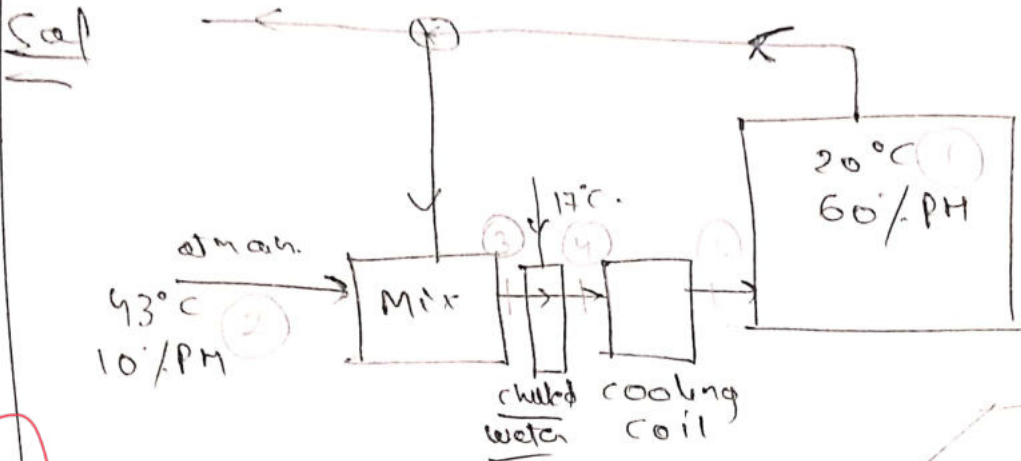 Sol
20°C ①
60% RH
17°C.
③
④
atm air.
43°C
②
10% RH
Mix
chilled
water
cooling
coil